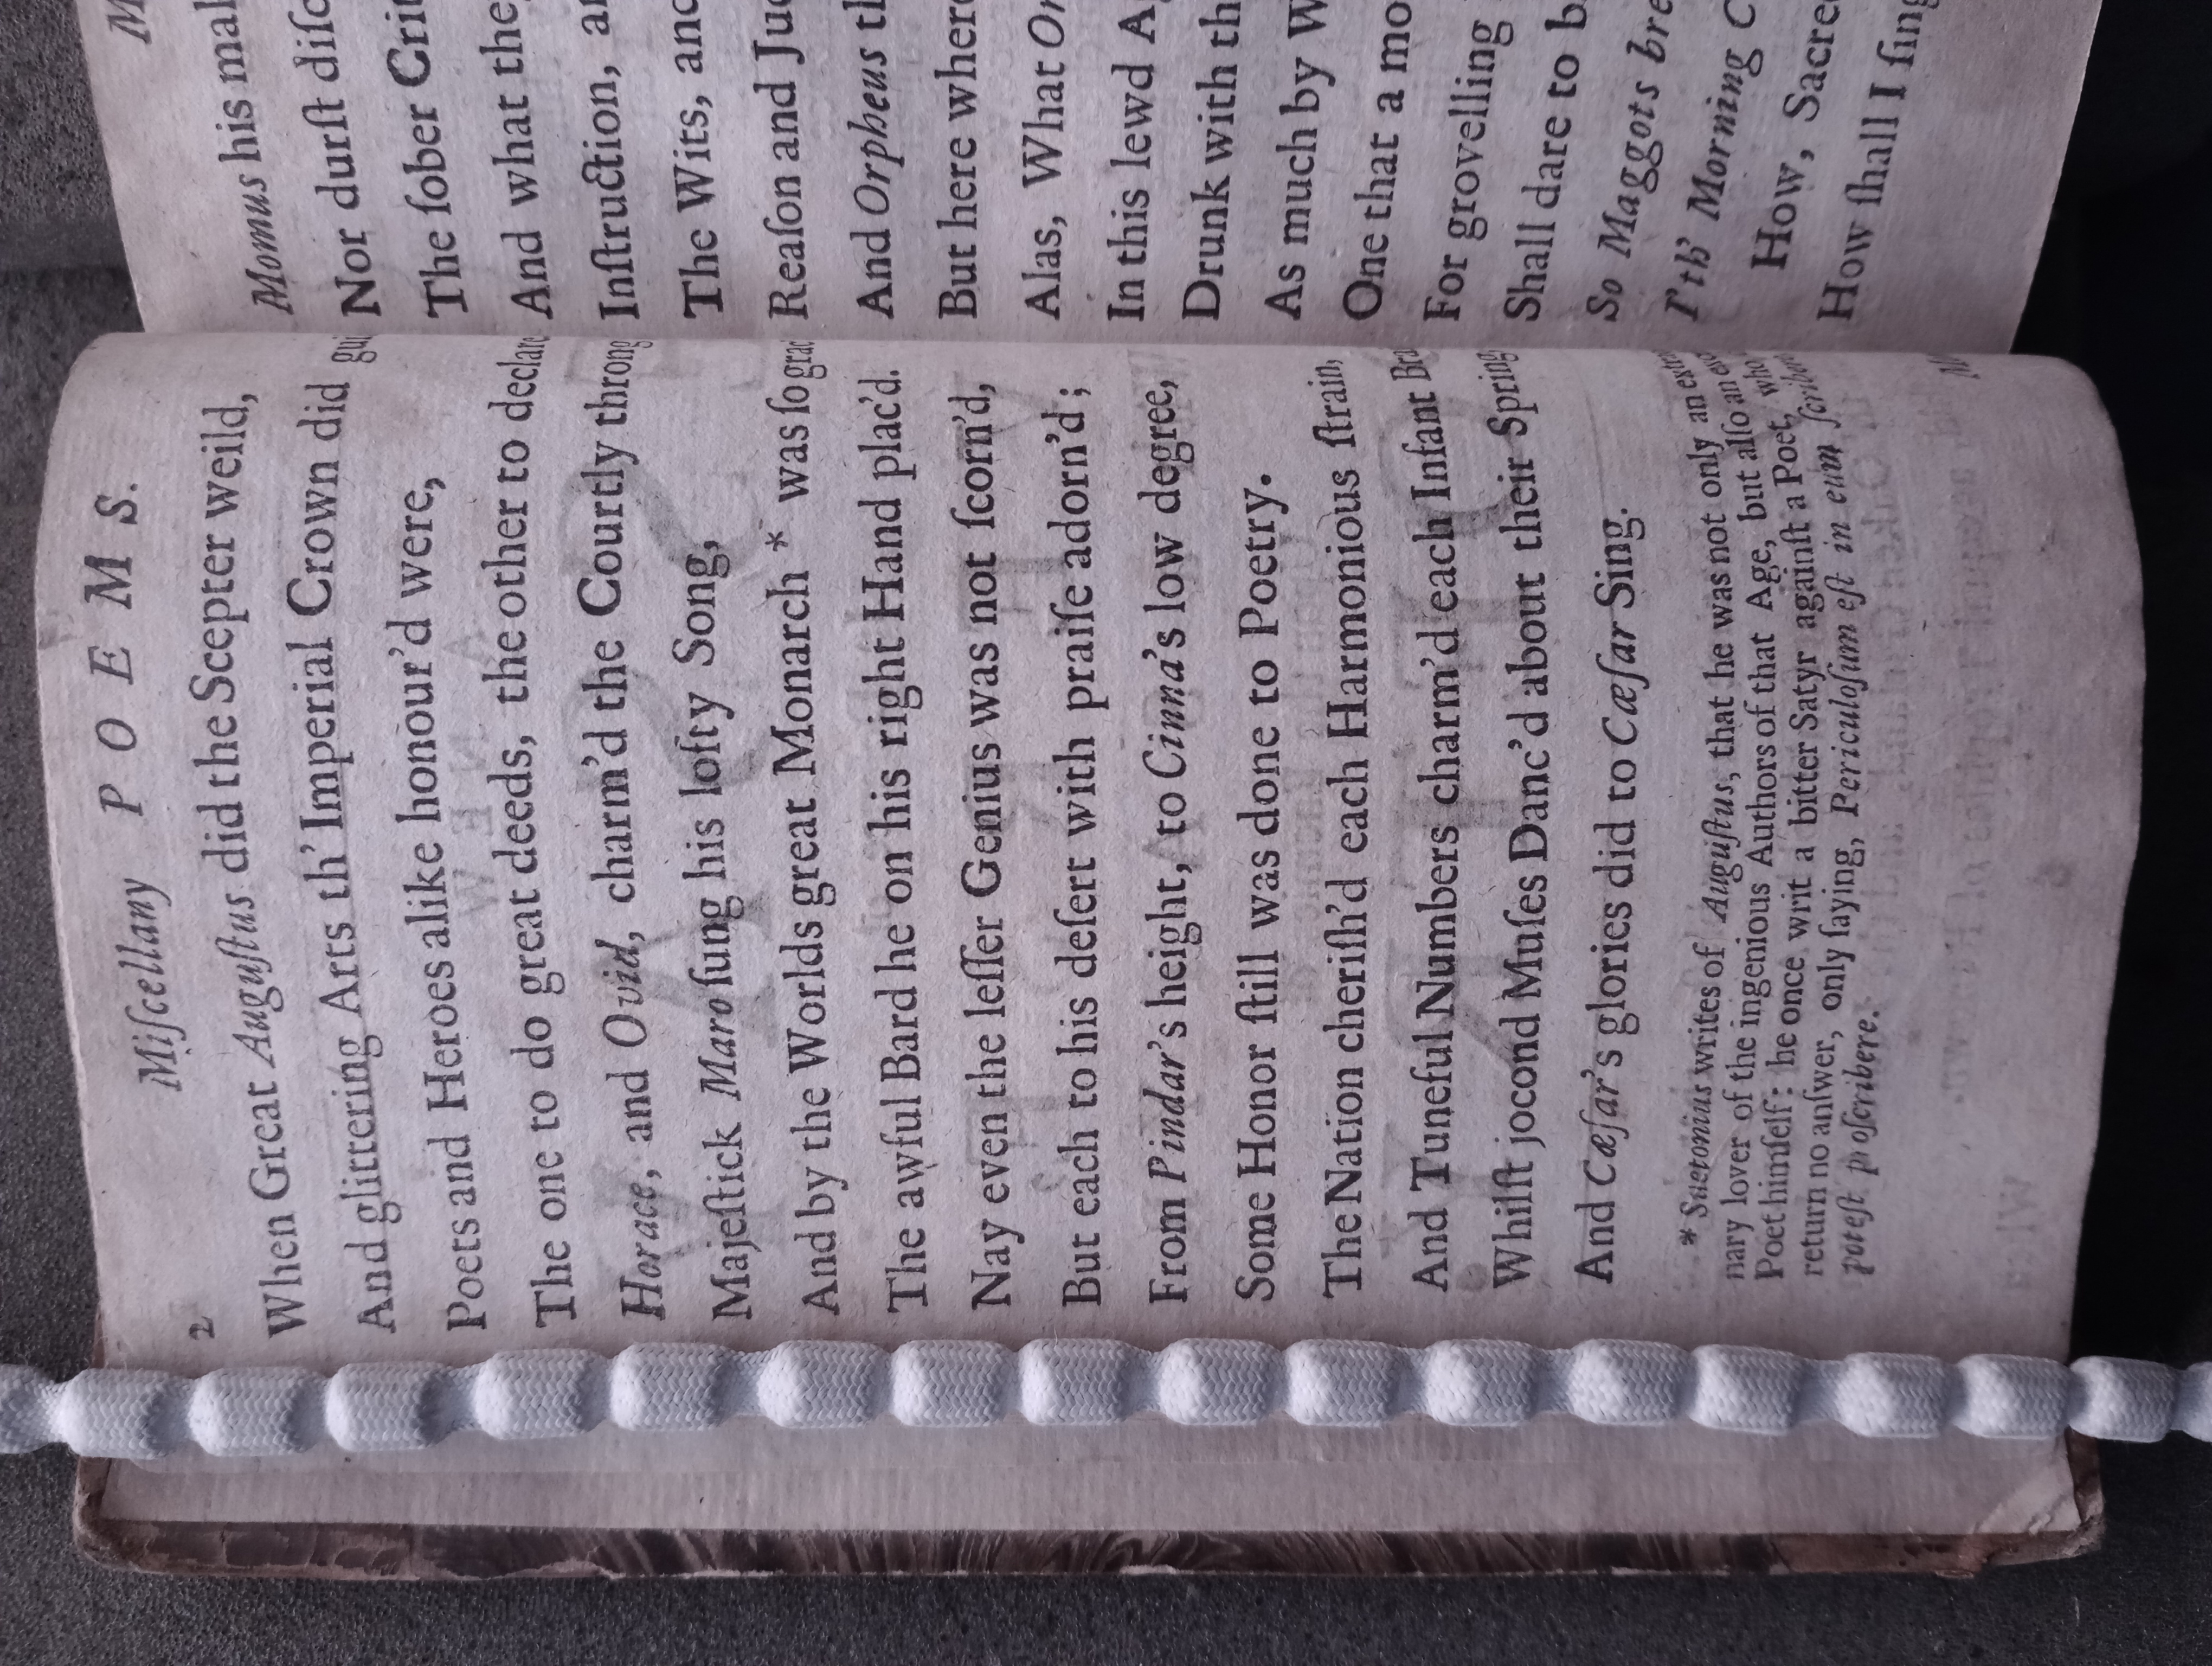 2
Miſcellany POEMS.
When Great Auguſtus did the Scepter weild,
And glittering Arts th' Imperial Crown did
Poets and Heroes alike honour'd were,
The one to do great deeds, the other to declare
Horace, and Ovid, charm'd the Courtly throng
Majeſtick Maro ſung his lofty Song,
And by the Worlds great Monarch * was ſo grac
The awful Bard he on his right Hand plac'd.
Nay even the leſſer Genius was not ſcorn'd,
But each to his deſert with praiſe adorn'd;
From Pindar's height, to Cinna's low degree,
Some Honor ſtill was done to Poetry.
The Nation cheriſh'd each Harmonious ſtrain,
And Tuneful Numbers charm'd each Infant Bra
Whilſt jocond Muſes Danc'd about their Spring
And Cæſar's glories did to Cæſar Sing.
* Suetonius writes of Auguſtus, that he was not only an
nary lover of the ingenious Authors of that Age, but alſo an
Poet himſelf: he once writ a bitter Satyr againſt a Poet, who
return no anſwer, only ſaying, Periculoſum eſt in eum ſcribere
poteſt proſcribere.
M
Momus his mal
Nor durſt diſc
The ſober Crit
And what the
Inſtruction,
The Wits, and
Reaſon and Jud
And Orpheus
But here where
Alas, What Or
In this lewd Ag
Drunk with th
As much by W
One that a mo
For grovelling
Shall dare to b
So Maggots bre
I'th' Morning C
How, Sacre
How ſhall I ſing